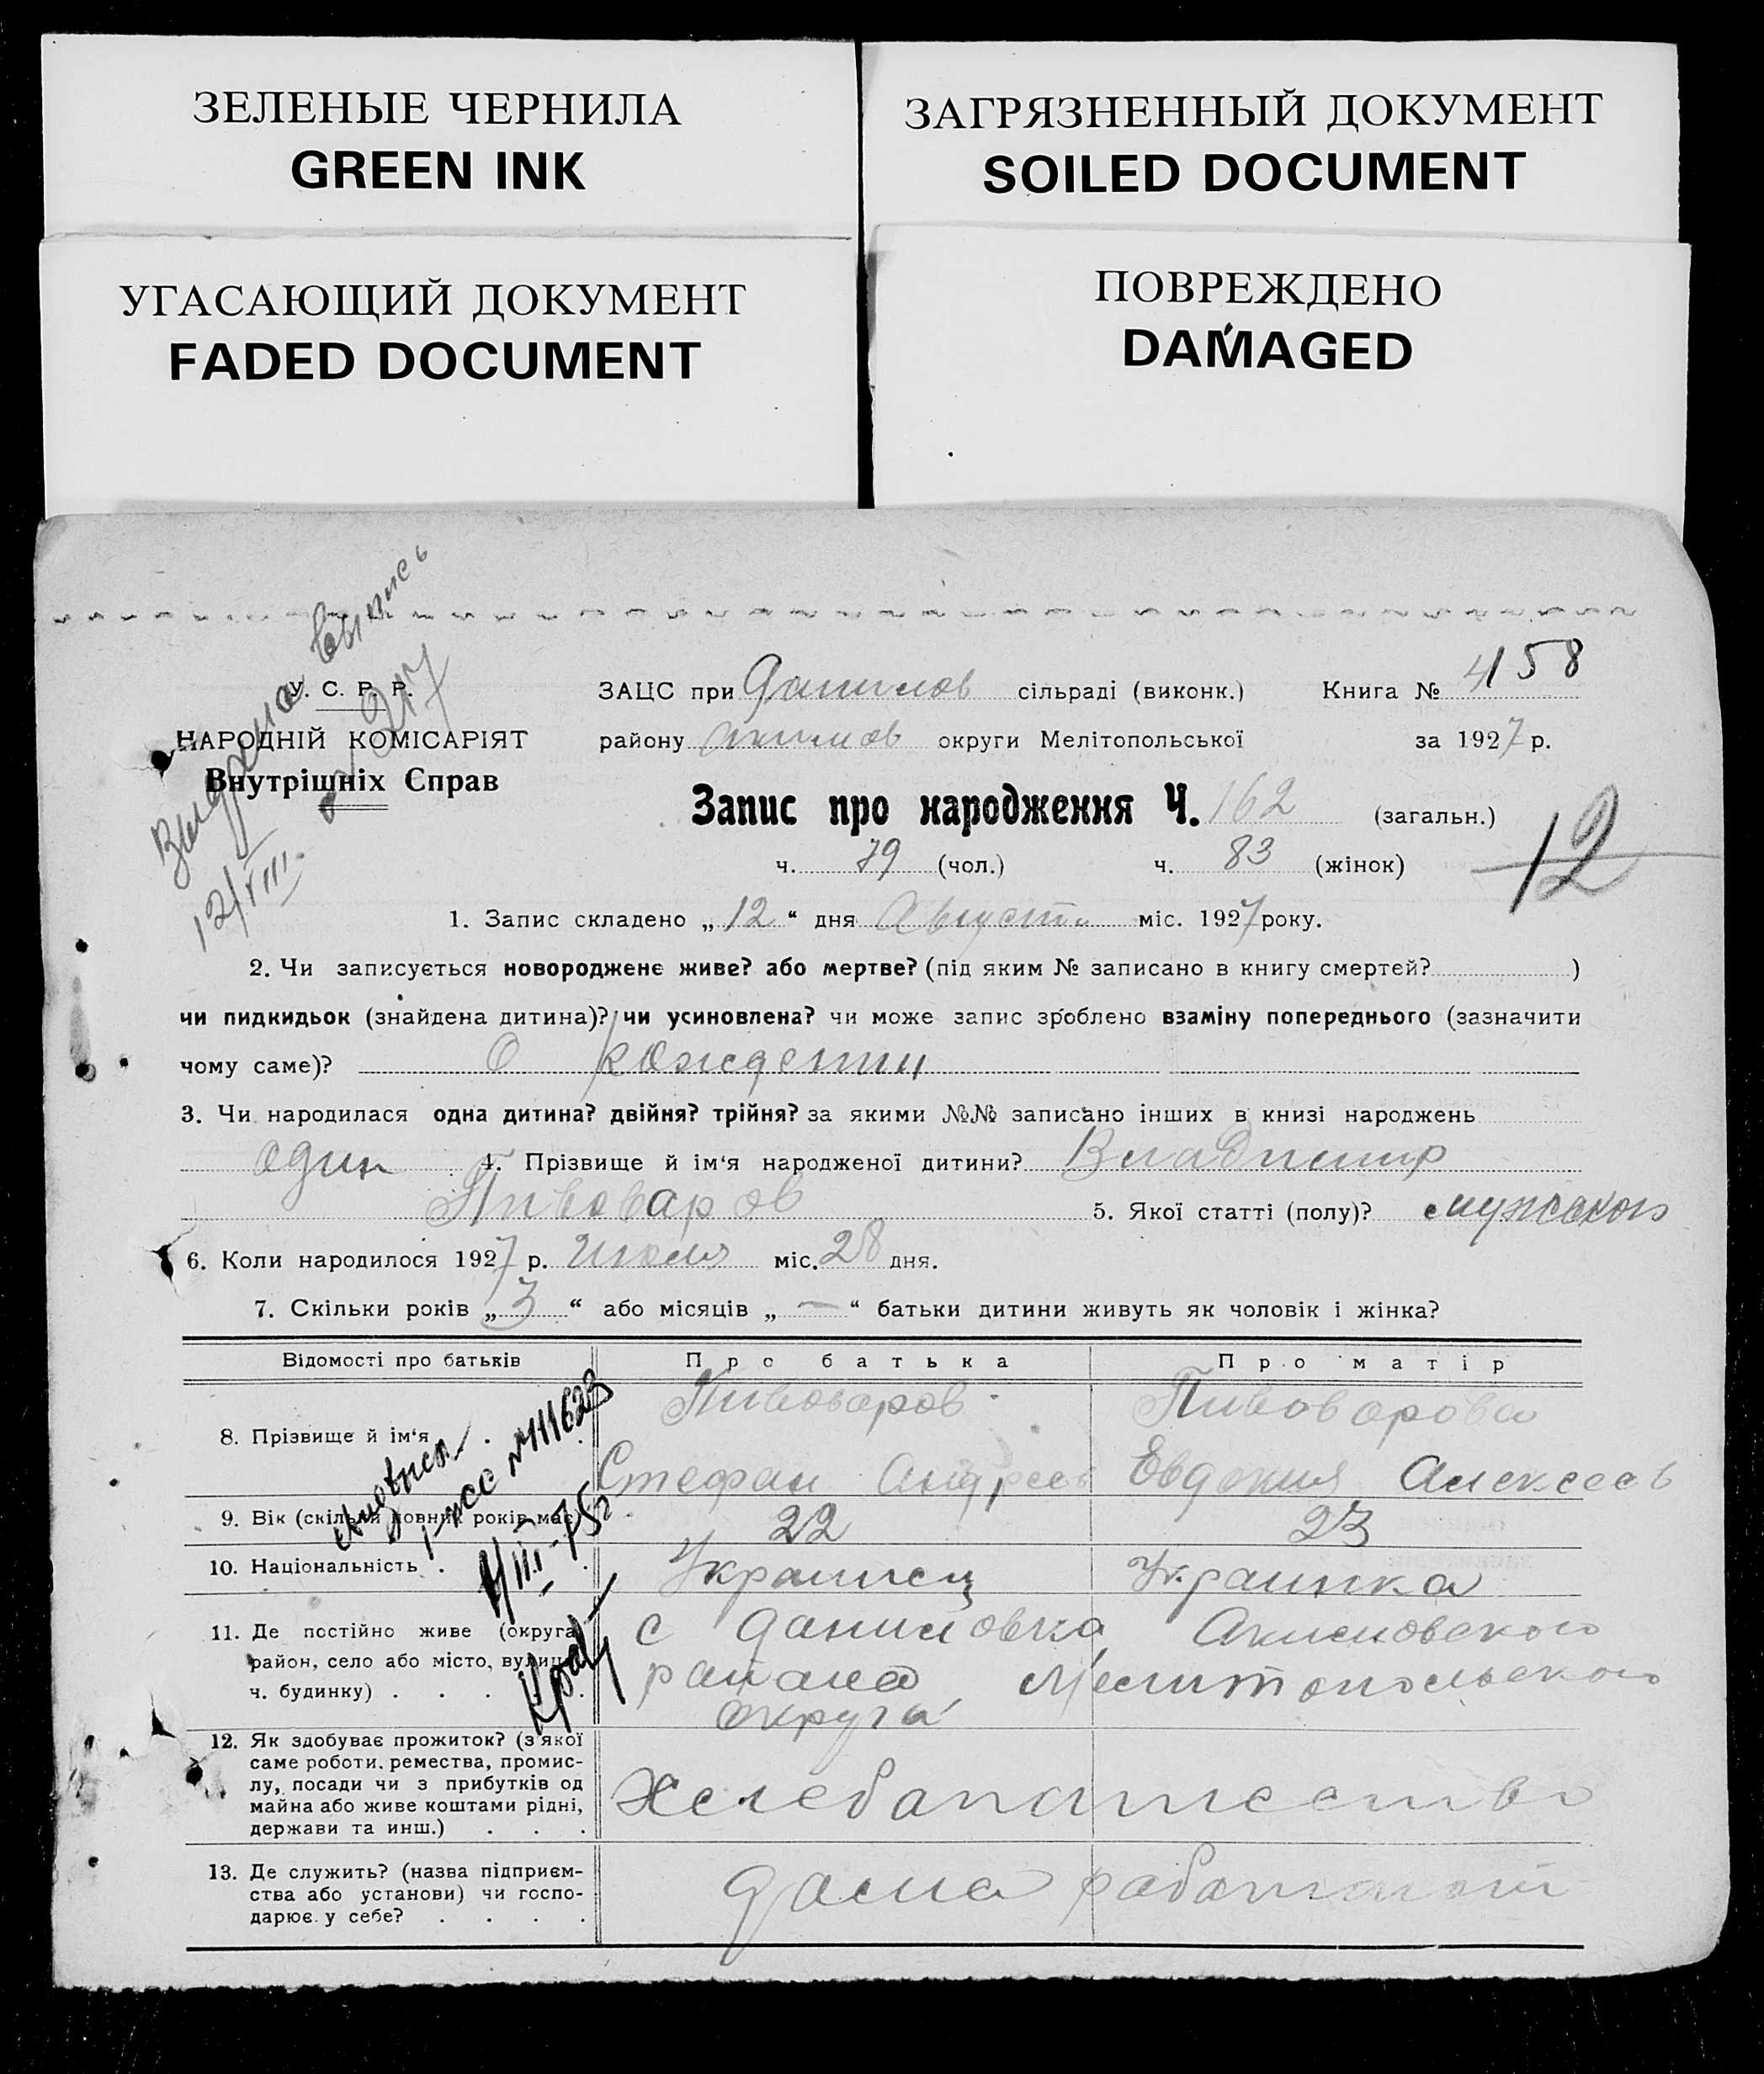 ЗЕЛЕНЫЕ ЧЕРНИЛА
GREEN INK
ЗАГРЯЗНЕННЫЙ ДОКУМЕНТ
SOILED DOCUMENT
УГАСАЮЩИЙ ДОКУМЕНТ
FADED DOCUMENT
ПОВРЕЖДЕНО
DAMAGED
Выдана выпись
12/VIII.
У. С. Р. Р.
НАРОДНІЙ КОМІСАРІЯТ
Внутрішніх Справ
ЗАЦС при Данилов сільраді (виконк.) Книга № 458
району Акимов округи Мелітопольської за 1927 р.
Запис про народження Ч. 162 (загальн.)
12
ч. 79 (чол.) ч. 83 (жінок)
1. Запис складено „ 12 “ дня Августа міс. 1927 року.
2. Чи записується новороджене живе? або мертве? (під яким № записано в книгу смертей? )
чи пидкидьок (знайдена дитина)? чи усиновлена? чи може запис зроблено взаміну попереднього (зазначити
чому саме)? О рождении
3. Чи народилася одна дитина? двійня? трійня? за якими №№ записано інших в книзі народжень
один 4. Прізвище й ім‘я народженої дитини? Владимир
Пивоваров 5. Якої статті (полу)? мужского
6. Коли народилося 1927 р. Июля міс. 28 дня.
7. Скільки років „ 3 “ або місяців „ — “ батьки дитини живуть як чоловік і жінка?
Відомості про батьків Про батька Про матір
8. Прізвище й ім‘я . .
Пивоваров Пивоварова
Стефан Андреев Евдокия Алексеев
9. Вік (скільки повних років має) 22 23
10. Національність . Украинец Украинка
11. Де постійно живе (округа,
район, село або місто, вулиця,
ч. будинку) . . . .
с Даниловка Акимовского
района Мелитопольского
округа
№111623
12. Як здобуває прожиток? (з якої
саме роботи, ремества, промис-
лу, посади чи з прибутків од
майна або живе коштами рідні,
держави та инш.) . . .
Хелебапашество
13. Де служить? (назва підприєм-
ства або установи) чи госпо-
дарює у себе? . . . .
дома работают